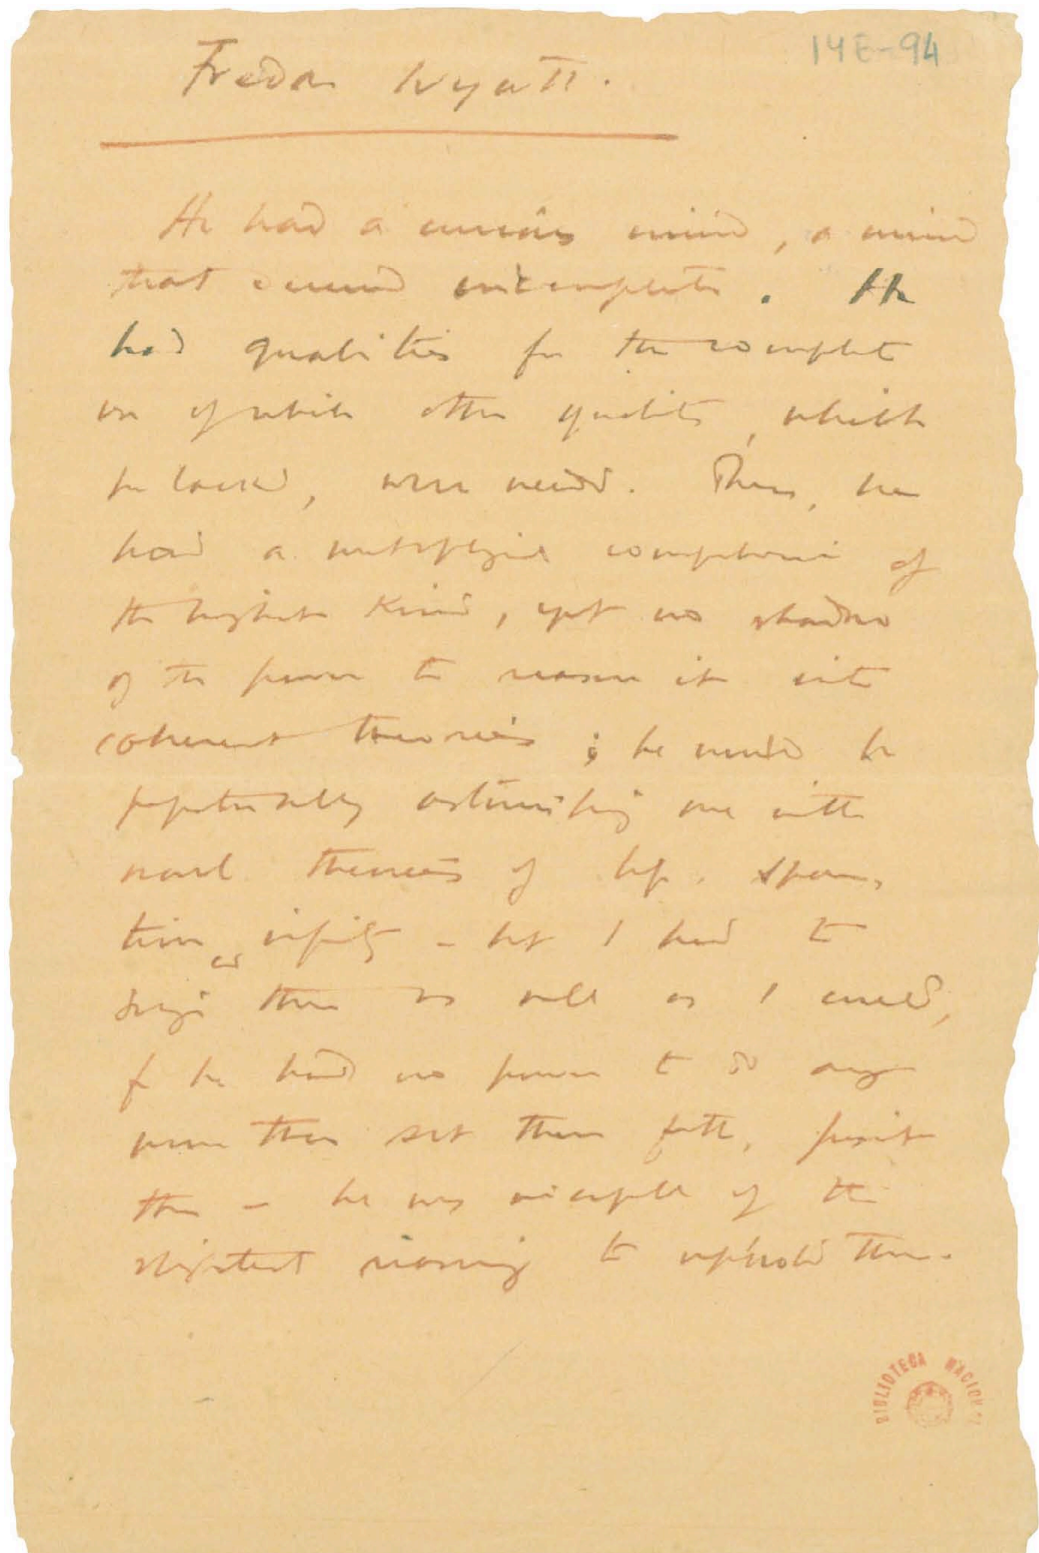 14E-94
Freda Wyatt.
He had a curious mind, a mind
that seemed incomplete. He
had qualities for the complet
ion of which other qualities, which
he lacked, were needed. Thus, he
had a metaphysical comprehension of
the highest kind, yet no shadow
of the power to reason it into
coherent theories; he would be
perpetually astonishing me with
novel theories of life, space,
time or infinity - but I had to
them as well as I could,
for he had no power to do any
more than set them forth, posit
them - he was incapable of the
slightest reasoning to uphold them.
BIBLIOTECA NACIONAL